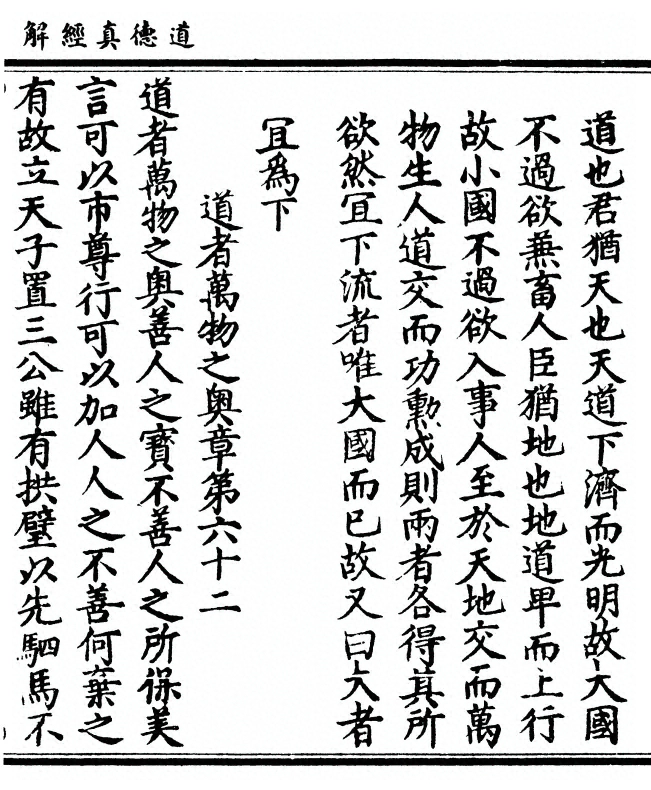 道德真經解
道也君猶天也天道下濟而光明故大國
不過欲兼畜人臣猶地也地道卑而上行
故小國不過欲入事人至於天地交而萬
物生人道交而功勲成則兩者各得其所
欲然冝下流者唯大國而已故又曰大者
冝為下
道者萬物之奥章第六十二
道者萬物之奥善人之寳不善人之所保美
言可以市尊行可以加人人之不善何棄之
有故立天子置三公雖有拱璧以先駟馬不